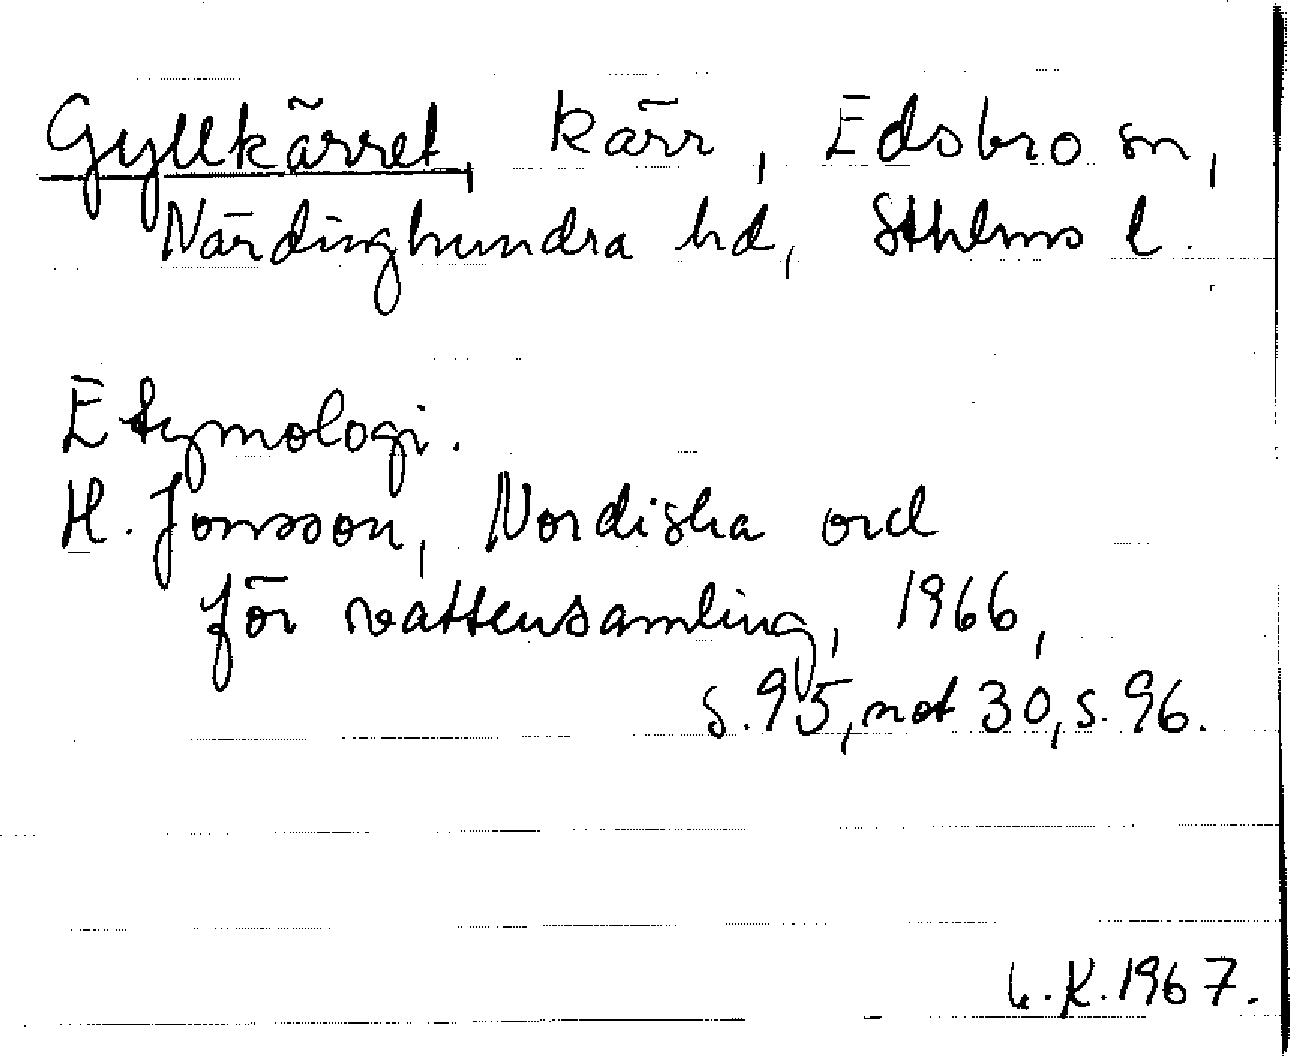 Gyllkärret, kärr, Edsbro sn,
Närdinghundra hd, Sthlms l.
Etymologi.
H. Jonsson, Nordiska ord
för vattensamling, 1966,
s. 95, not 30, s. 96.
K. 1967.